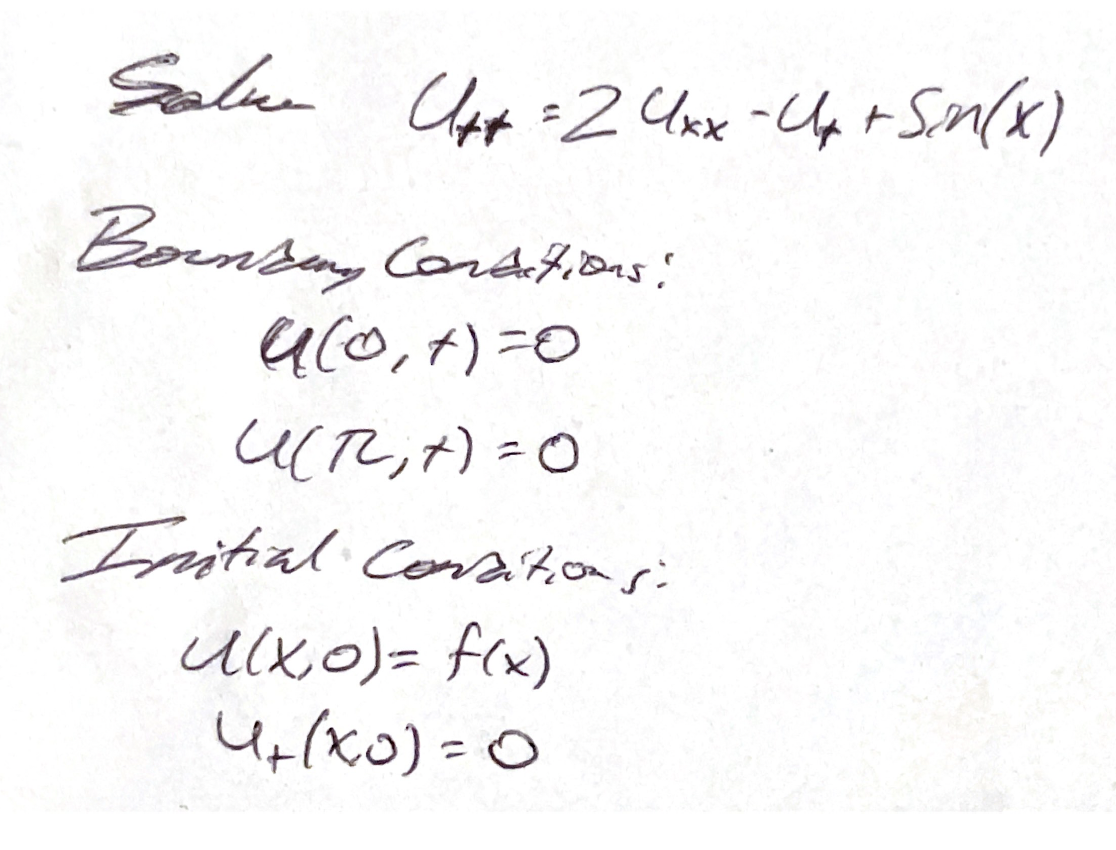 Solve U_tt = 2 U_xx - U_t + Sin(x)
Boundary Conditions:
u(0, t) = 0
u(π, t) = 0
Initial Conditions:
u(x, 0) = f(x)
u_t(x, 0) = 0